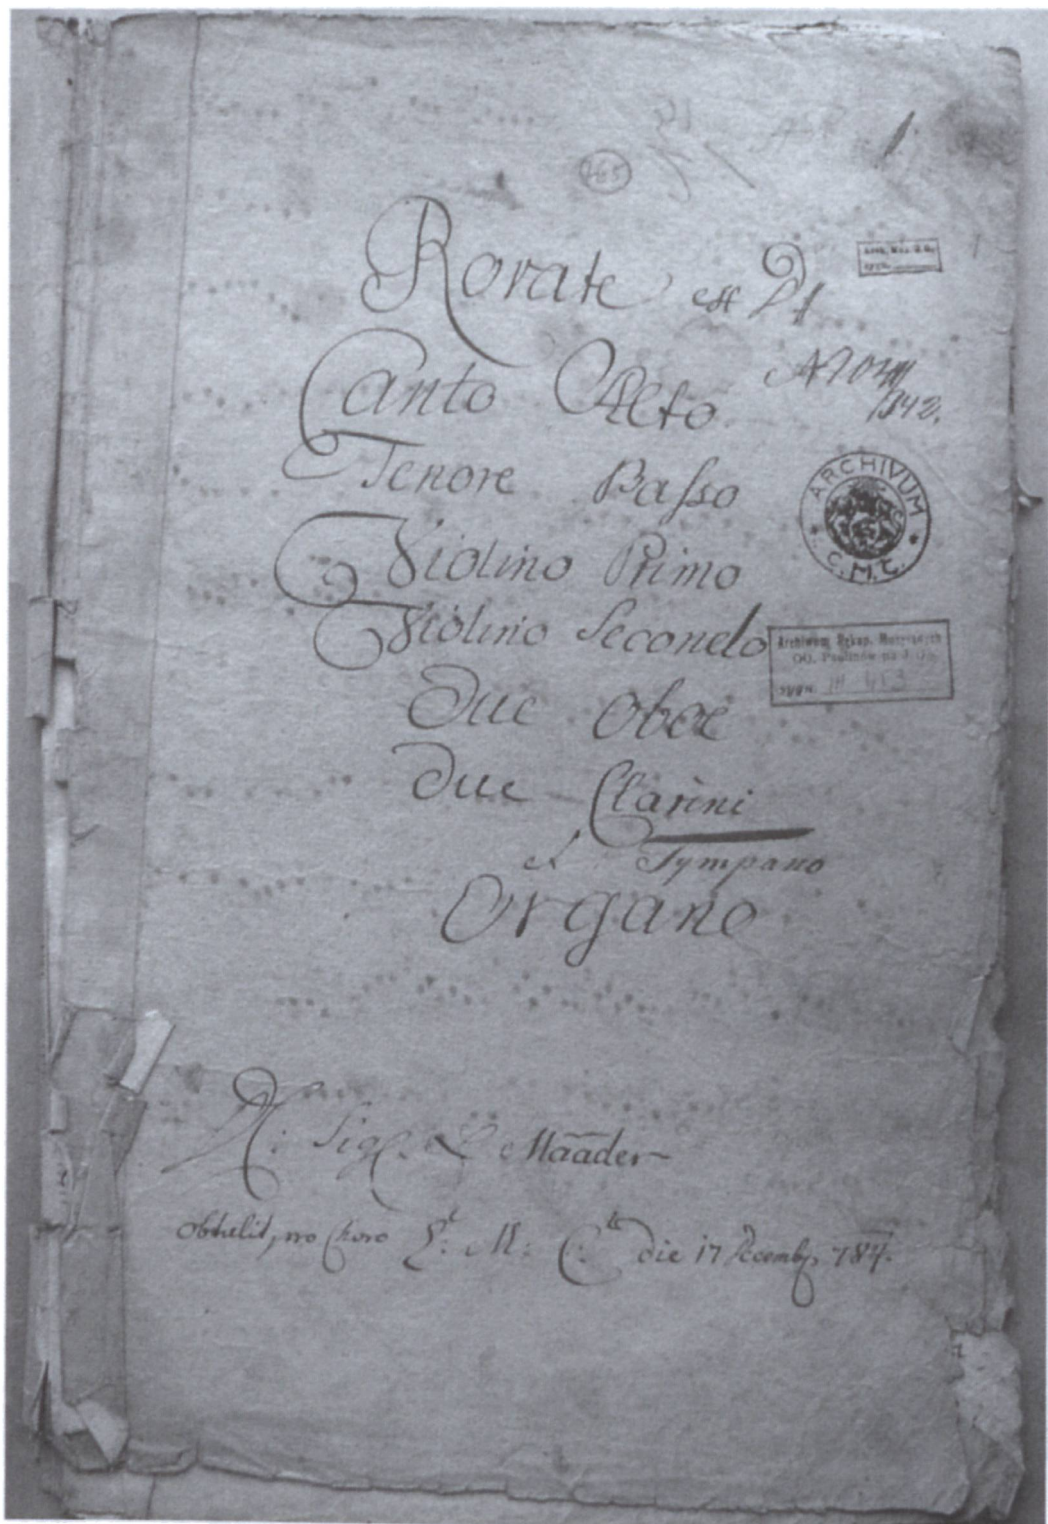 1.
265
Rorate ex D♯
Canto Alto
Tenore Basso
Violino Primo
Violino Secondo
Due Oboe
Due Clarini
et Tympano
Organo
ARCHIVUM
C.M.C.
Archiwum Rękop. Muzycznych
OO. Paulinów na J. G.
sygn. III 453
Sig L Maader
obtulit, pro Choro C: M: C: die 17 Decemb,